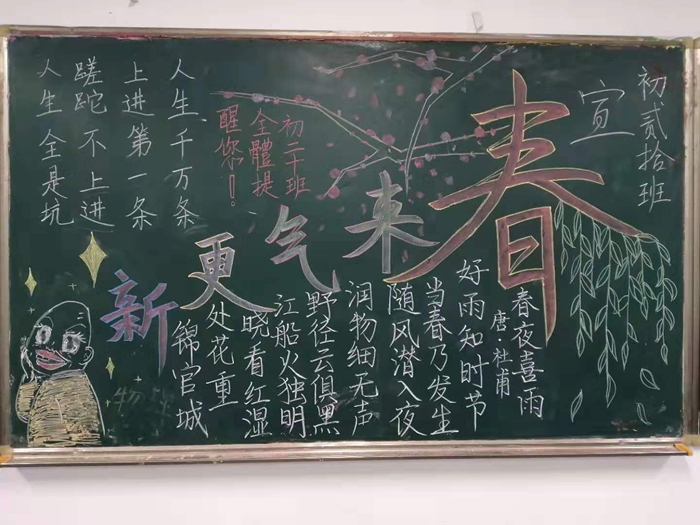 初贰拾班
宣
春来气更新
初二十班
全體提
醒您！
人生千万条
上进第一条
蹉跎不上进
人生全是坑
春夜喜雨
唐·杜甫
好雨知时节
当春乃发生
随风潜入夜
润物细无声
野径云俱黑
江船火独明
晓看红湿
处花重
锦官城